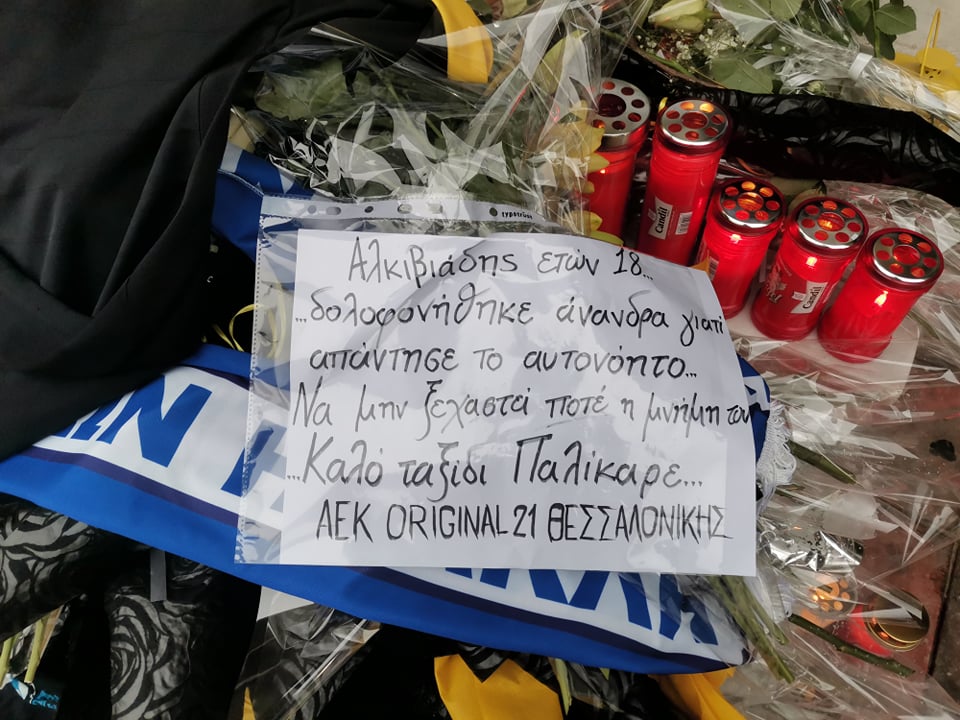 typotrust
Candil
Candil
Αλκιβιάδης ετών 18...
...δολοφονήθηκε άνανδρα γιατί
απάντησε το αυτονόητο...
Να μην ξεχαστεί ποτέ η μνήμη του
...Καλό ταξίδι Παλίκαρε...
ΑΕΚ ORIGINAL 21 ΘΕΣΣΑΛΟΝΙΚΗΣ